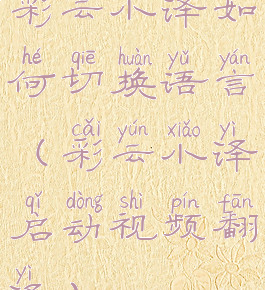 彩云小译如
hé qiē huàn yǔ yán
何切换语言
cǎi yún xiǎo yì
（彩云小译
qǐ dòng shì pín fān
启动视频翻
yì
译）